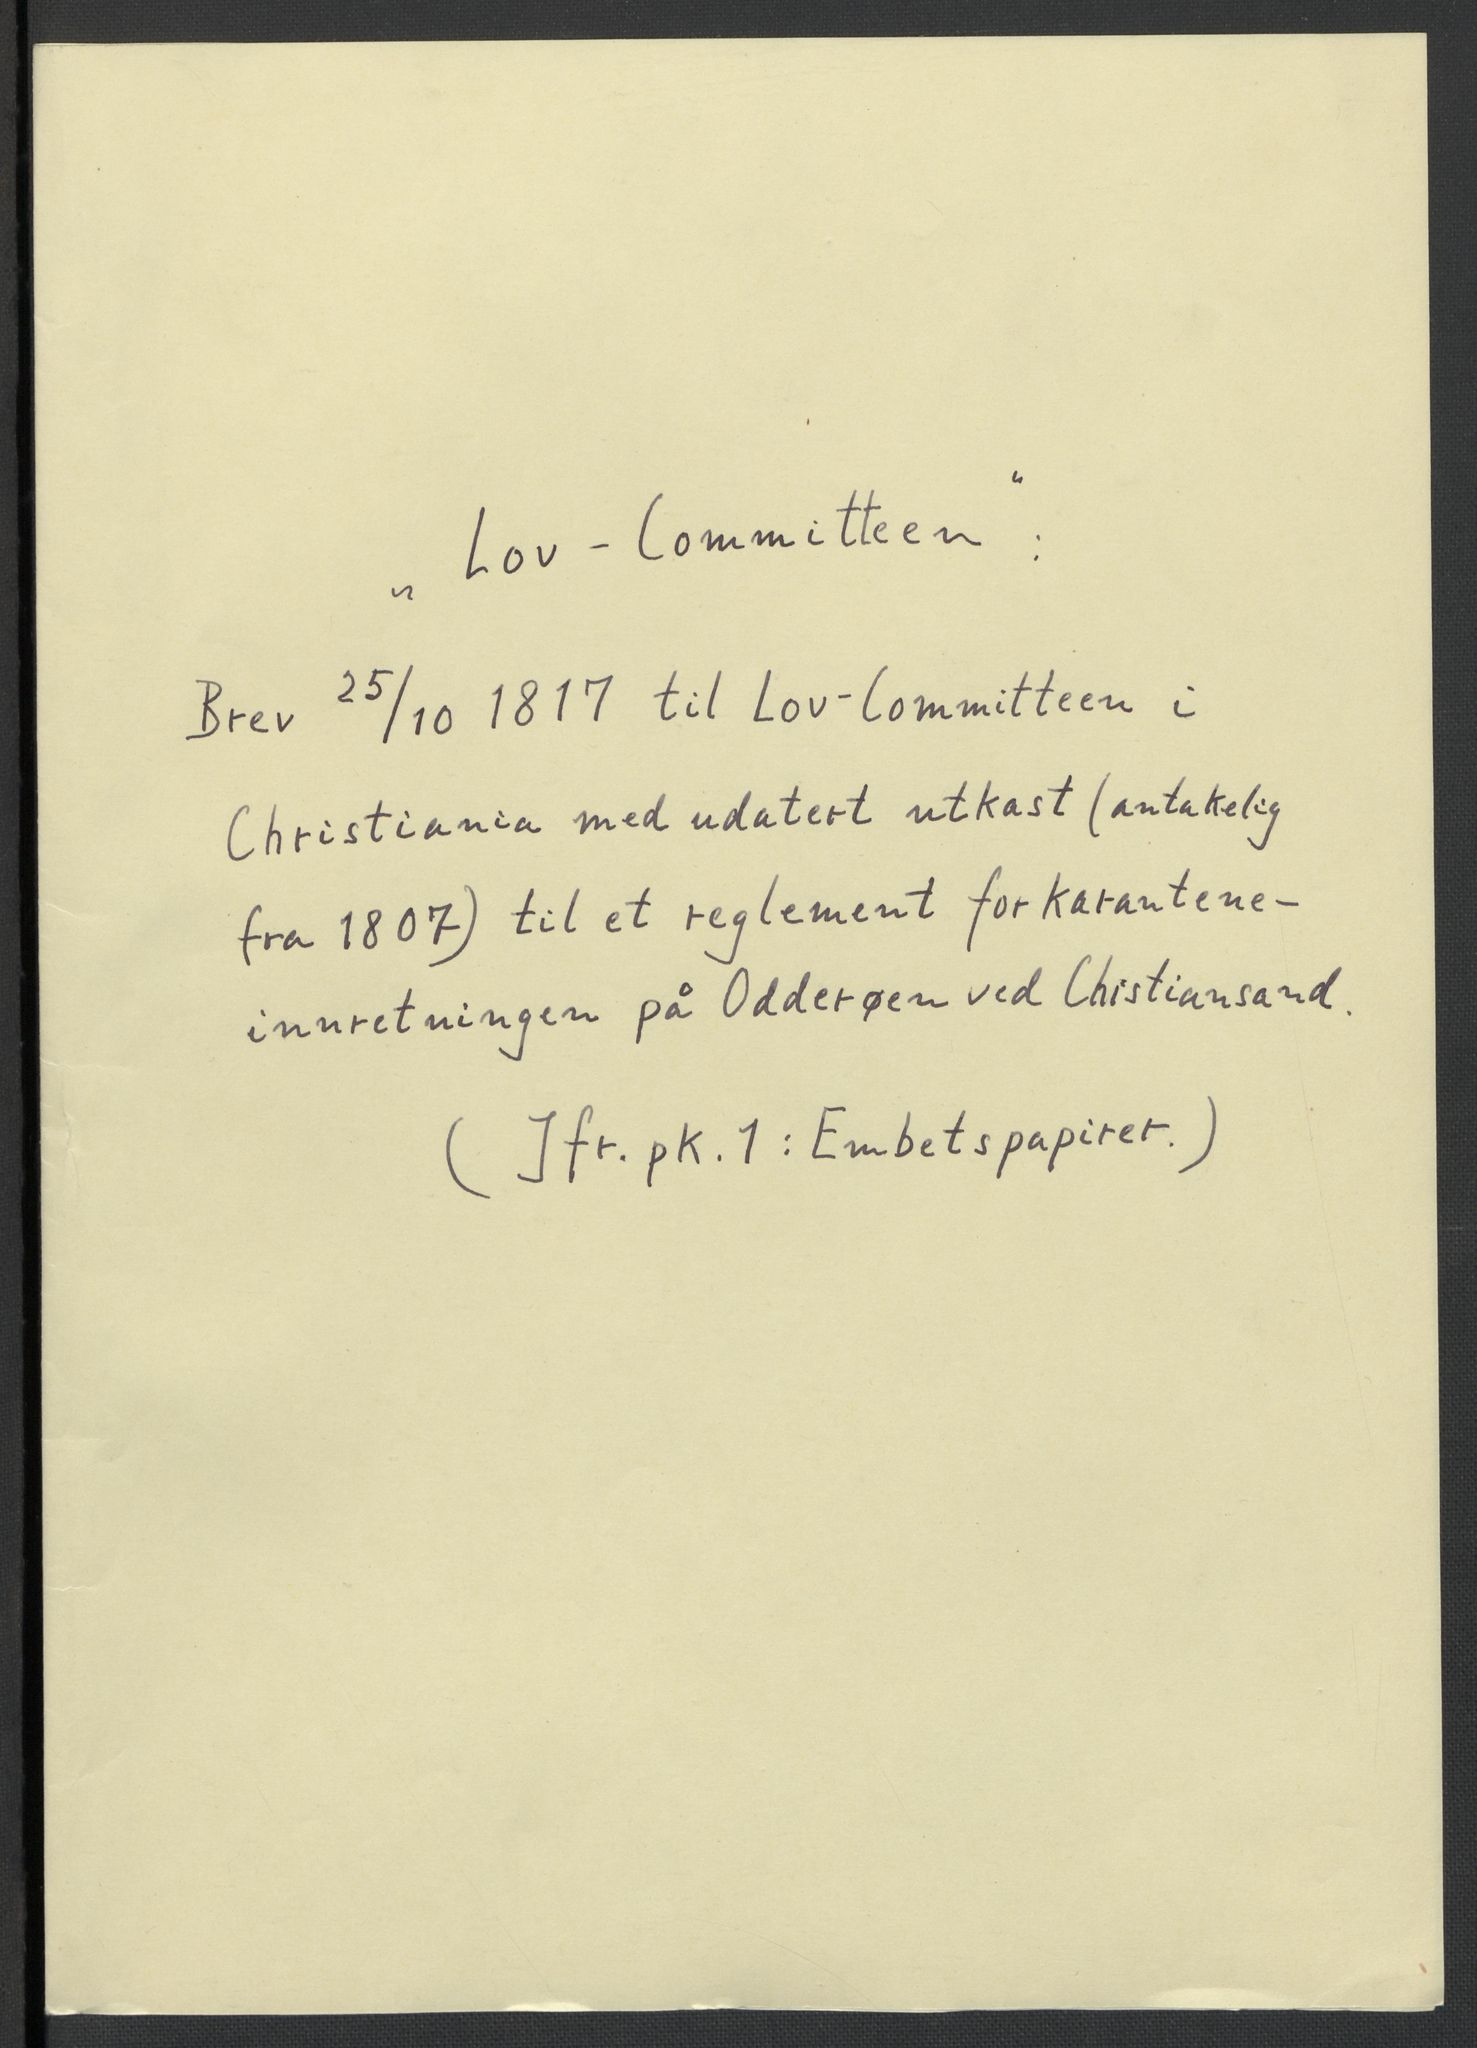 „Lov-Committeen“:
Brev 25/10 1817 til Lov-Committeen i
Christiania med udatert utkast (antakelig
fra 1807) til et reglement for karantene-
innretningen på Odderøen ved Chistiansand.
(Jfr. pk. 1: Embetspapirer.)